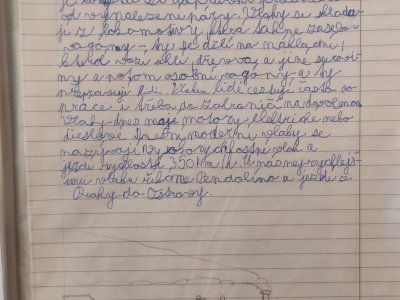 od vynalezení páry. Vlaky se sklada-
jí z lokomotivy, která táhne za sebou
vagony, ty se dělí na nákladní,
které vozí uhlí, dřevo a jiné surovi-
ny a potom osobní vagony a ty
přepravují lidi. Vlakem lidé cestují často do
práce i třeba po zahraničí na dovolenou
Vlaky dnes mají motory elektrické nebo
dieslové. Dnešní moderní vlaky se
nazývají vysokorychlostní vlak a
jezdí rychlostí 350 km/h. U nás nejrychlejš-
ímu vlaku říkáme Pendolíno a jezdí z
Prahy do Ostravy.